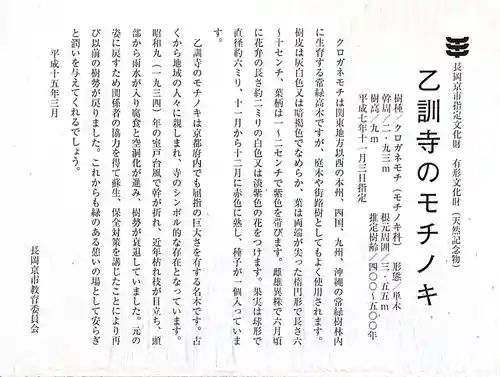 長岡京市指定文化財　有形文化財（天然記念物）
乙訓寺のモチノキ
樹種／クロガネモチ（モチノキ科）　形態／単木
幹周／二・九三m　根元周囲／三・五五m
樹高／九m　推定樹齢／四〇〇〜五〇〇年
平成七年十一月三日指定
クロガネモチは関東地方以西の本州、四国、九州、沖縄の常緑樹林内
に生育する常緑高木ですが、庭木や街路樹としてもよく使用されます。
樹皮は灰白色又は暗褐色でなめらか、葉は両端が尖った楕円形で長さ六
〜十センチ、葉柄は一〜二センチで紫色を帯びます。雌雄異株で六月頃
に花弁の長さ約二ミリの白色又は淡紫色の花をつけます。果実は球形で
直径約六ミリ、十一月から十二月に赤色に熟し、種子が一個入っていま
す。
乙訓寺のモチノキは京都府内でも屈指の巨大さを有する名木です。古
くから地域の人々に親しまれ、寺のシンボル的な存在となっています。
昭和九（一九三四）年の室戸台風で幹が折れ、近年枯れ枝が目立ち、頭
部から雨水が入り腐食と空洞化が進み、樹勢が衰退していました。元の
姿に戻すため関係者の協力を得て蘇生、保全対策を講じたことにより再
び以前の樹勢が戻りました。これからも緑のある憩いの場として安らぎ
と潤いを与えてくれるでしょう。
平成十五年三月
長岡京市教育委員会